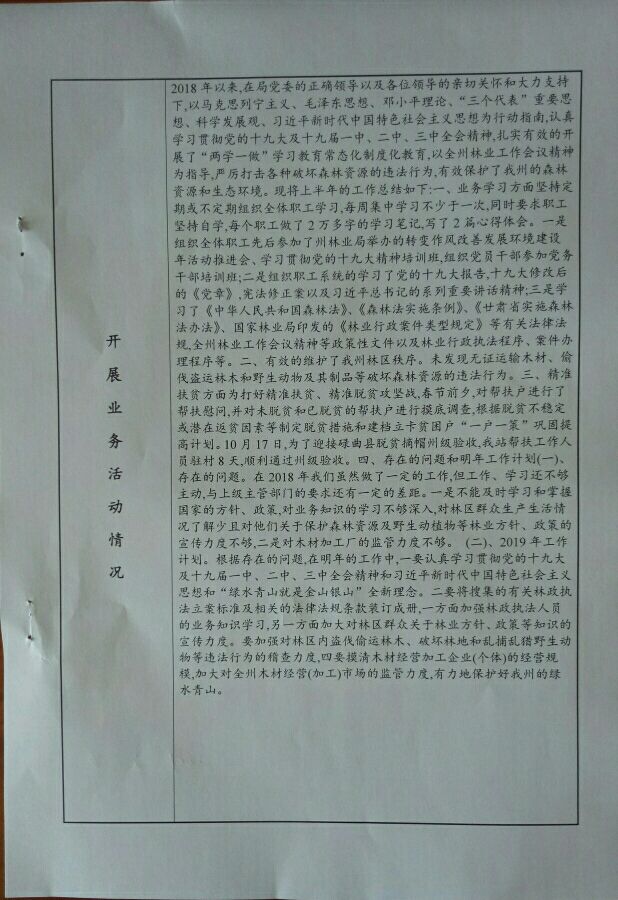 开展业务活动情况
2018 年以来,在局党委的正确领导以及各位领导的亲切关怀和大力支持
下,以马克思列宁主义、毛泽东思想、邓小平理论、“三个代表”重要思
想、科学发展观、习近平新时代中国特色社会主义思想为行动指南,认真
学习贯彻党的十九大及十九届一中、二中、三中全会精神,扎实有效的开
展了“两学一做”学习教育常态化制度化教育,以全州林业工作会议精神
为指导,严厉打击各种破坏森林资源的违法行为,有效保护了我州的森林
资源和生态环境。现将上半年的工作总结如下:一、业务学习方面坚持定
期或不定期组织全体职工学习,每周集中学习不少于一次,同时要求职工
坚持自学,每个职工做了 2 万多字的学习笔记,写了 2 篇心得体会。一是
组织全体职工先后参加了州林业局举办的转变作风改善发展环境建设
年活动推进会、学习贯彻党的十九大精神培训班,组织党员干部参加党务
干部培训班;二是组织职工系统的学习了党的十九大报告,十九大修改后
的《党章》,宪法修正案以及习近平总书记的系列重要讲话精神;三是学
习了《中华人民共和国森林法》、《森林法实施条例》、《甘肃省实施森林
法办法》、国家林业局印发的《林业行政案件类型规定》等有关法律法
规,全州林业工作会议精神等政策性文件以及林业行政执法程序、案件办
理程序等。二、有效的维护了我州林区秩序。未发现无证运输木材、偷
伐盗运林木和野生动物及其制品等破坏森林资源的违法行为。三、精准
扶贫方面为打好精准扶贫、精准脱贫攻坚战,春节前夕,对帮扶户进行了
帮扶慰问,并对未脱贫和已脱贫的帮扶户进行摸底调查,根据脱贫不稳定
或潜在返贫因素等制定脱贫措施和建档立卡贫困户“一户一策”巩固提
高计划。10 月 17 日,为了迎接碌曲县脱贫摘帽州级验收,我站帮扶工作人
员驻村 8 天,顺利通过州级验收。四、存在的问题和明年工作计划(一)、
存在的问题。在 2018 年我们虽然做了一定的工作,但工作、学习还不够
主动,与上级主管部门的要求还有一定的差距。一是不能及时学习和掌握
国家的方针、政策,对业务知识的学习不够深入,对林区群众生产生活情
况了解少且对他们关于保护森林资源及野生动植物等林业方针、政策的
宣传力度不够,二是对木材加工厂的监管力度不够。 (二)、2019 年工作
计划。根据存在的问题,在明年的工作中,一要认真学习贯彻党的十九大
及十九届一中、二中、三中全会精神和习近平新时代中国特色社会主义
思想和“绿水青山就是金山银山”全新理念。二要将搜集的有关林政执
法立案标准及相关的法律法规条款装订成册,一方面加强林政执法人员
的业务知识学习,另一方面加大对林区群众关于林业方针、政策等知识的
宣传力度。要加强对林区内盗伐偷运林木、破坏林地和乱捕乱猎野生动
物等违法行为的稽查力度,四要摸清木材经营加工企业(个体)的经营规
模,加大对全州木材经营(加工)市场的监管力度,有力地保护好我州的绿
水青山。